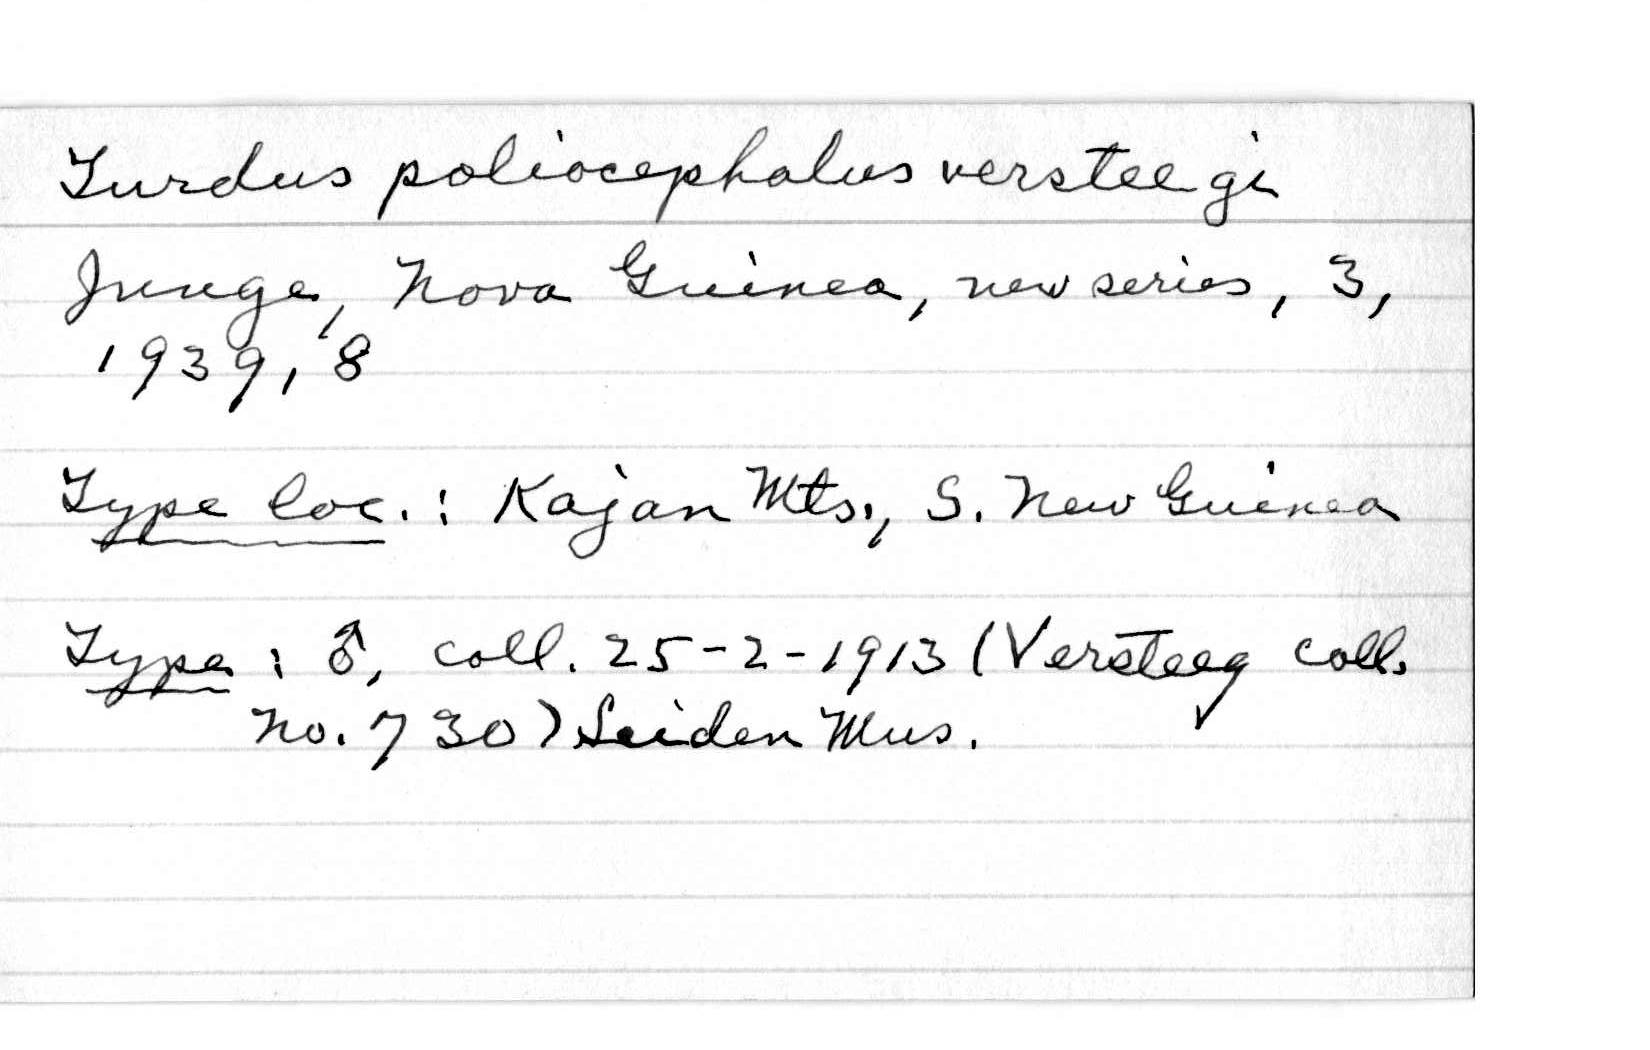 Turdus poliocephalus versteegi
Junge, Nova Guinea, new series, 3,
1939, 8
Type loc.: Kajan Mts., S. New Guinea
Type: ♂, coll. 25-2-1913 (Versteeg coll.
no. 730) Leiden Mus.